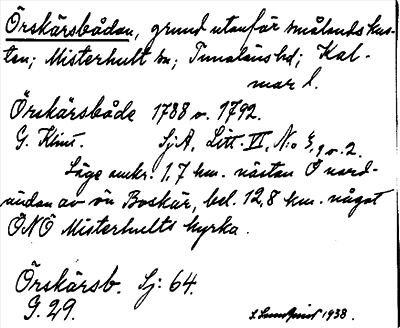 Örskärsbådan, grund utanför smålandskus-
ten; Misterhult sn; Tunaläns hd; Kal-
mar l.
Örskärsbåde 1788 o. 1792.
G. Klint. SjA, Litt. VI, N:o 8, 1 o. 2.
Läge omkr. 1,7 km. nästan Ö nord-
ändan av ön Boskär, bel. 12,8 km. något
ÖNÖ Misterhults kyrka.
Örskärsb. Sj: 64.
G. 29. 1938.